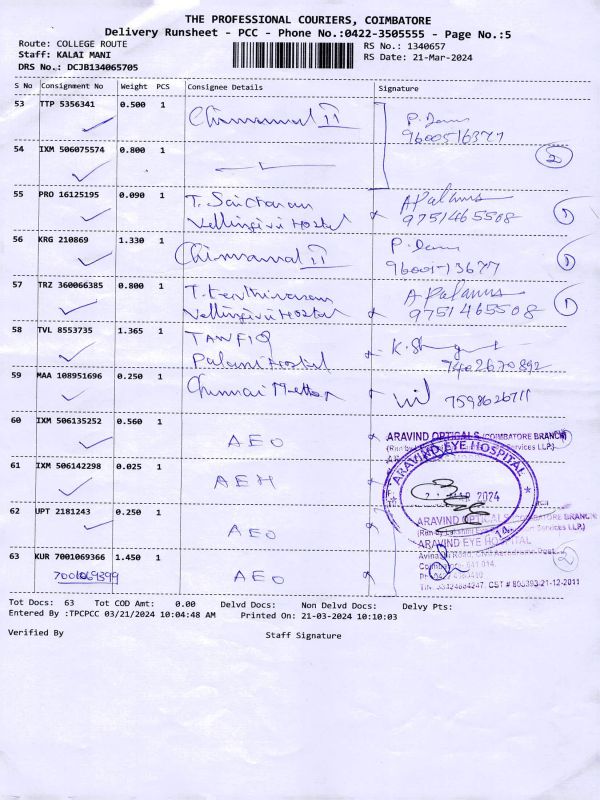 THE PROFESSIONAL COURIERS, COIMBATORE
Delivery Runsheet - PCC - Phone No.:0422-3505555 - Page No.:5
Route: COLLEGE ROUTE
RS No.: 1340657
Staff: KALAI MANI
RS Date: 21-Mar-2024
DRS No.: DCJB134065705
S No Consignment No Weight PCS Consignee Details Signature
53 TTP 5356341 0.500 1
9600516377
54 IXM 506075574 0.800 1
2
55 PRO 16125195 0.090 1 T. Saicharan
Vellingiri Hostel 9751465508
56 KRG 210869 1.330 1
57 TRZ 360066385 0.800 1
Vellingiri Hostel 9751465508
58 TVL 8553735 1.365 1 TAWFIQ
Palani Hostel 7402670892
59 MAA 108951696 0.250 1 Chennai 7598626711
60 IXM 506135252 0.560 1 AEO
ARAVIND OPTICALS (COIMBATORE BRANCH)
61 IXM 506142298 0.025 1 AEH
ARAVIND EYE HOSPITAL
MAR 2024
62 UPT 2181243 0.250 1 AEO
ARAVIND OPTICALS (COIMBATORE BRANCH)
ARAVIND EYE HOSPITAL
63 KUR 7001069366 1.450 1 AEO
7001069399
2
Tot Docs: 63 Tot COD Amt: 0.00 Delvd Docs: Non Delvd Docs: Delvy Pts:
Entered By :TPCPCC 03/21/2024 10:04:48 AM Printed On: 21-03-2024 10:10:03
Verified By Staff Signature